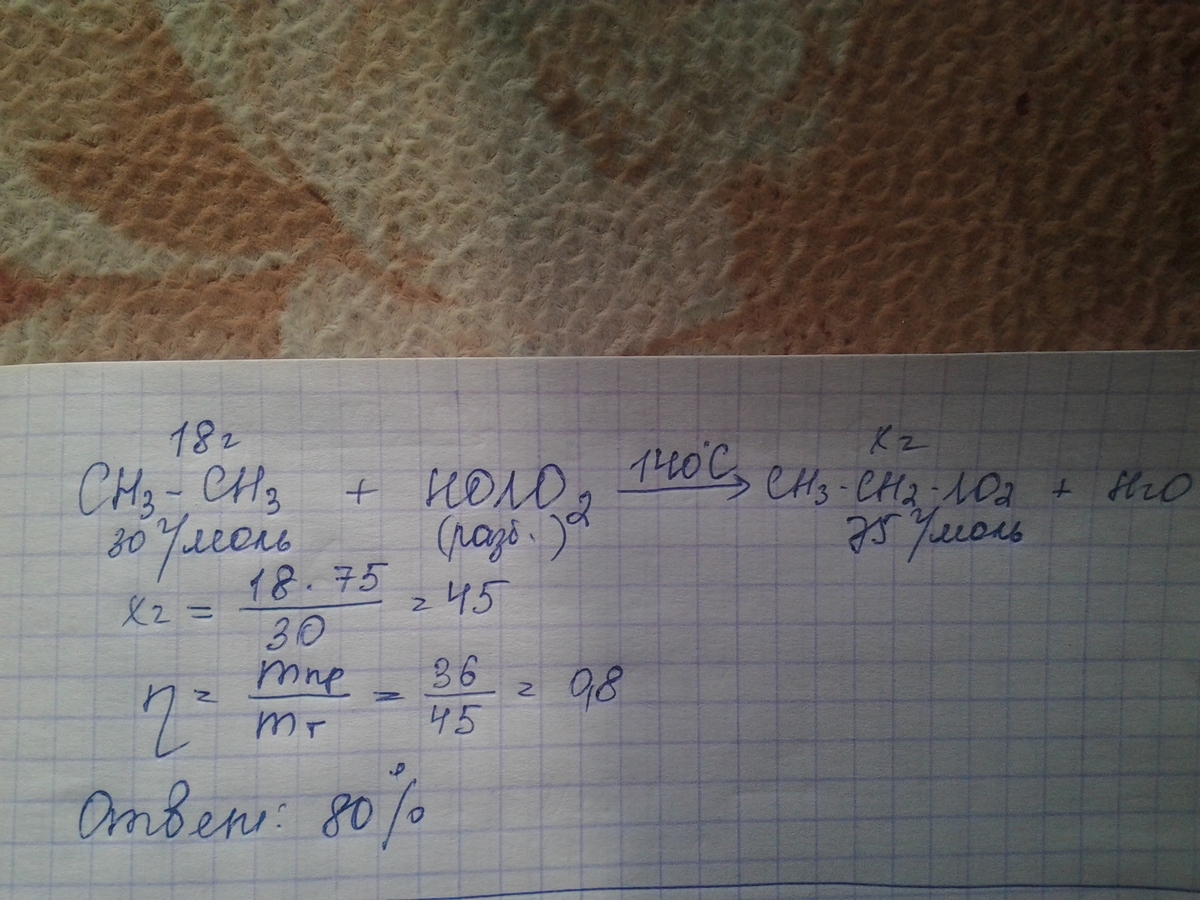 18г xг
CH₃ - CH₃ + HONO₂ 140°C→ CH₃ - CH₂ - NO₂ + H₂O
30 г/моль (разб.) 75 г/моль
xг = 18 · 75 / 30 = 45
η = mпр / mт = 36 / 45 = 0,8
Ответ: 80%